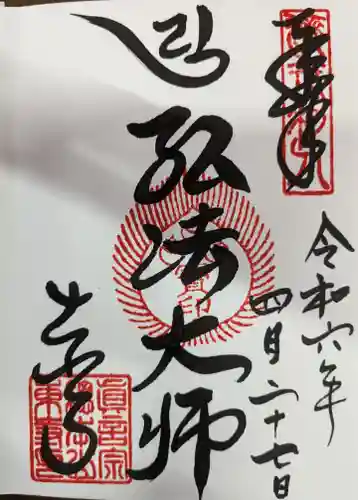 奉拝
令和六年
四月二十七日
弘法大師
東寺
真言宗
総本山
東寺